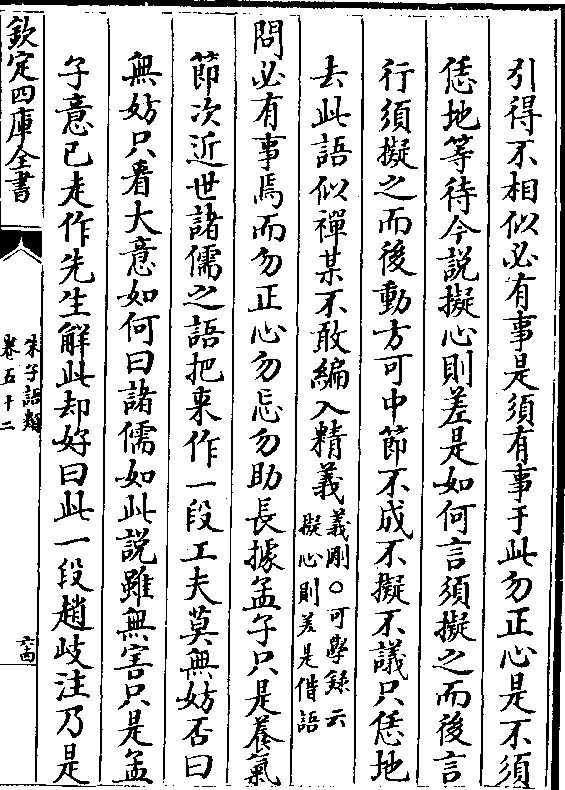 引得不相似必有事是須有事于此勿正心是不須
恁地等待今説擬心則差是如何言須擬之而後言
行須擬之而後動方可中節不成不擬不議只恁地
去此語似禪某不敢編入精義義剛○可學録云擬心則差是借語
問必有事焉而勿正心勿忘勿助長據孟子只是養氣
節次近世諸儒之語把來作一段工夫莫無妨否曰
無妨只看大意如何曰諸儒如此説雖無害只是孟
子意已走作先生解此却好曰此一段趙岐注乃是
欽定四庫全書
朱子語類
卷五十二
六四